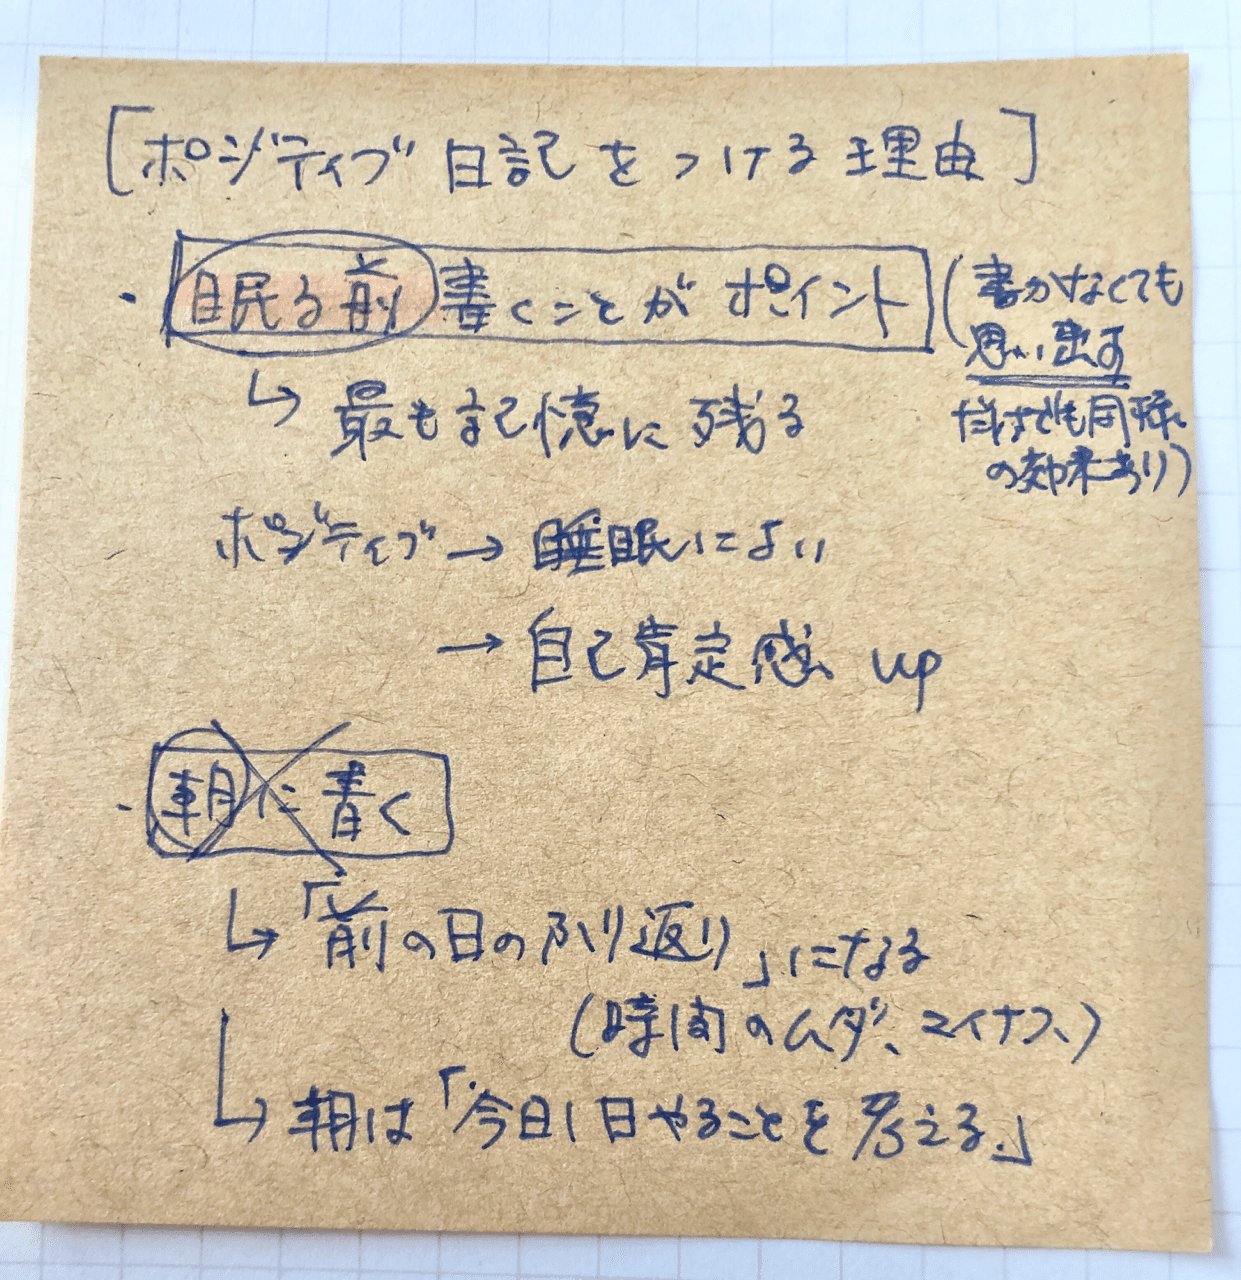 [ポジティブ日記をつける理由]
・眠る前書くことがポイント
(書かなくても
思い出す
だけでも同様
の効果あり)
↳最も記憶に残る
ポジティブ→睡眠によい
→自己肯定感up
・朝に書く
↳「前の日のふり返り」になる
(時間のムダ、マイナス)
↳朝は「今日1日やることを考える」